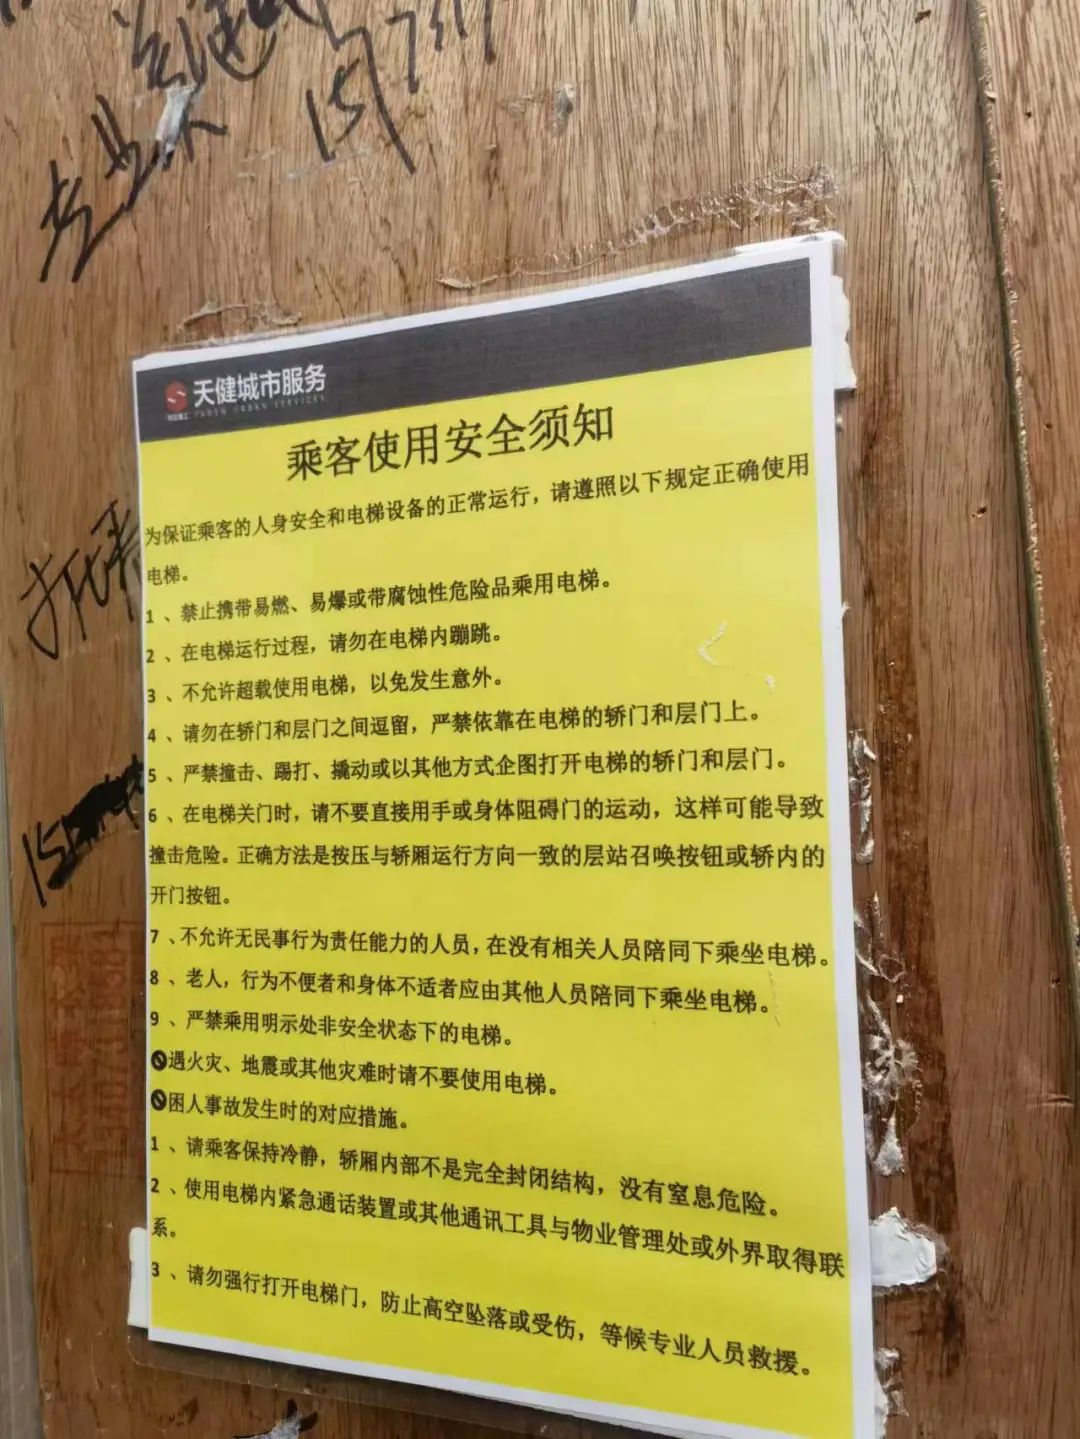 专业
打孔
天健城市服务
TAGEN URBAN SERVICES
乘客使用安全须知
为保证乘客的人身安全和电梯设备的正常运行，请遵照以下规定正确使用
电梯。
1、禁止携带易燃、易爆或带腐蚀性危险品乘用电梯。
2、在电梯运行过程，请勿在电梯内蹦跳。
3、不允许超载使用电梯，以免发生意外。
4、请勿在轿门和层门之间逗留，严禁依靠在电梯的轿门和层门上。
5、严禁撞击、踢打、撬动或以其他方式企图打开电梯的轿门和层门。
6、在电梯关门时，请不要直接用手或身体阻碍门的运动，这样可能导致
撞击危险。正确方法是按压与轿厢运行方向一致的层站召唤按钮或轿内的
开门按钮。
7、不允许无民事行为责任能力的人员，在没有相关人员陪同下乘坐电梯。
8、老人，行为不便者和身体不适者应由其他人员陪同下乘坐电梯。
9、严禁乘用明示处非安全状态下的电梯。
遇火灾、地震或其他灾难时请不要使用电梯。
困人事故发生时的对应措施。
1、请乘客保持冷静，轿厢内部不是完全封闭结构，没有窒息危险。
2、使用电梯内紧急通话装置或其他通讯工具与物业管理处或外界取得联
系。
3、请勿强行打开电梯门，防止高空坠落或受伤，等候专业人员救援。